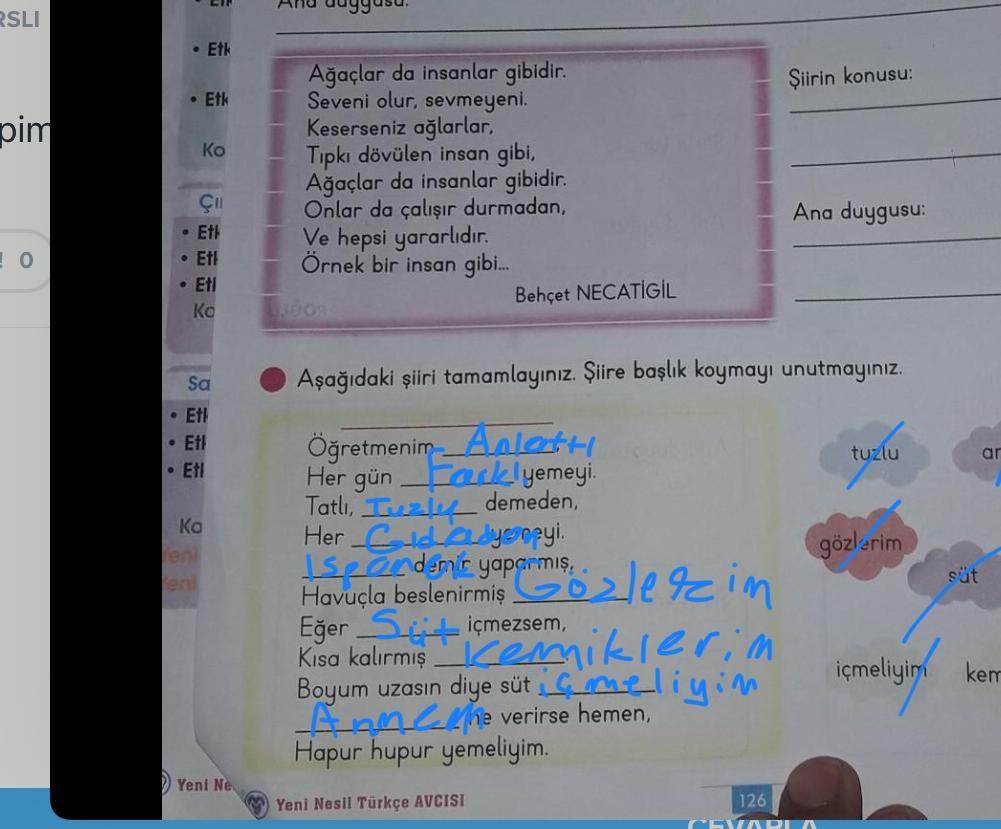 RSLI
pim
! 0
Ana duygusu:
• Etk
• Etk
Ko
Çı
• Etk
• Etk
• Etl
Ko
Sa
• Etl
• Etl
• Etl
Ko
Yeni
Yeni
Ağaçlar da insanlar gibidir.
Seveni olur, sevmeyeni.
Keserseniz ağlarlar,
Tıpkı dövülen insan gibi,
Ağaçlar da insanlar gibidir.
Onlar da çalışır durmadan,
Ve hepsi yararlıdır.
Örnek bir insan gibi...
Behçet NECATİGİL
Şiirin konusu:
Ana duygusu:
Aşağıdaki şiiri tamamlayınız. Şiire başlık koymayı unutmayınız.
Öğretmenim Anlattı
Her gün Farklı yemeyi.
Tatlı, Tuzlu demeden,
Her Gıdadan yemeyi.
Ispanak demir yaparmış,
Havuçla beslenirmiş Gözlerim
Eğer Süt içmezsem,
Kısa kalırmış kemiklerim
Boyum uzasın diye süt içmeliyim
Annem ne verirse hemen,
Hapur hupur yemeliyim.
tuzlu
an
gözlerim
süt
içmeliyim
kem
Yeni Ne
Yeni Nesil Türkçe AVCISI
126
CEVAPLA